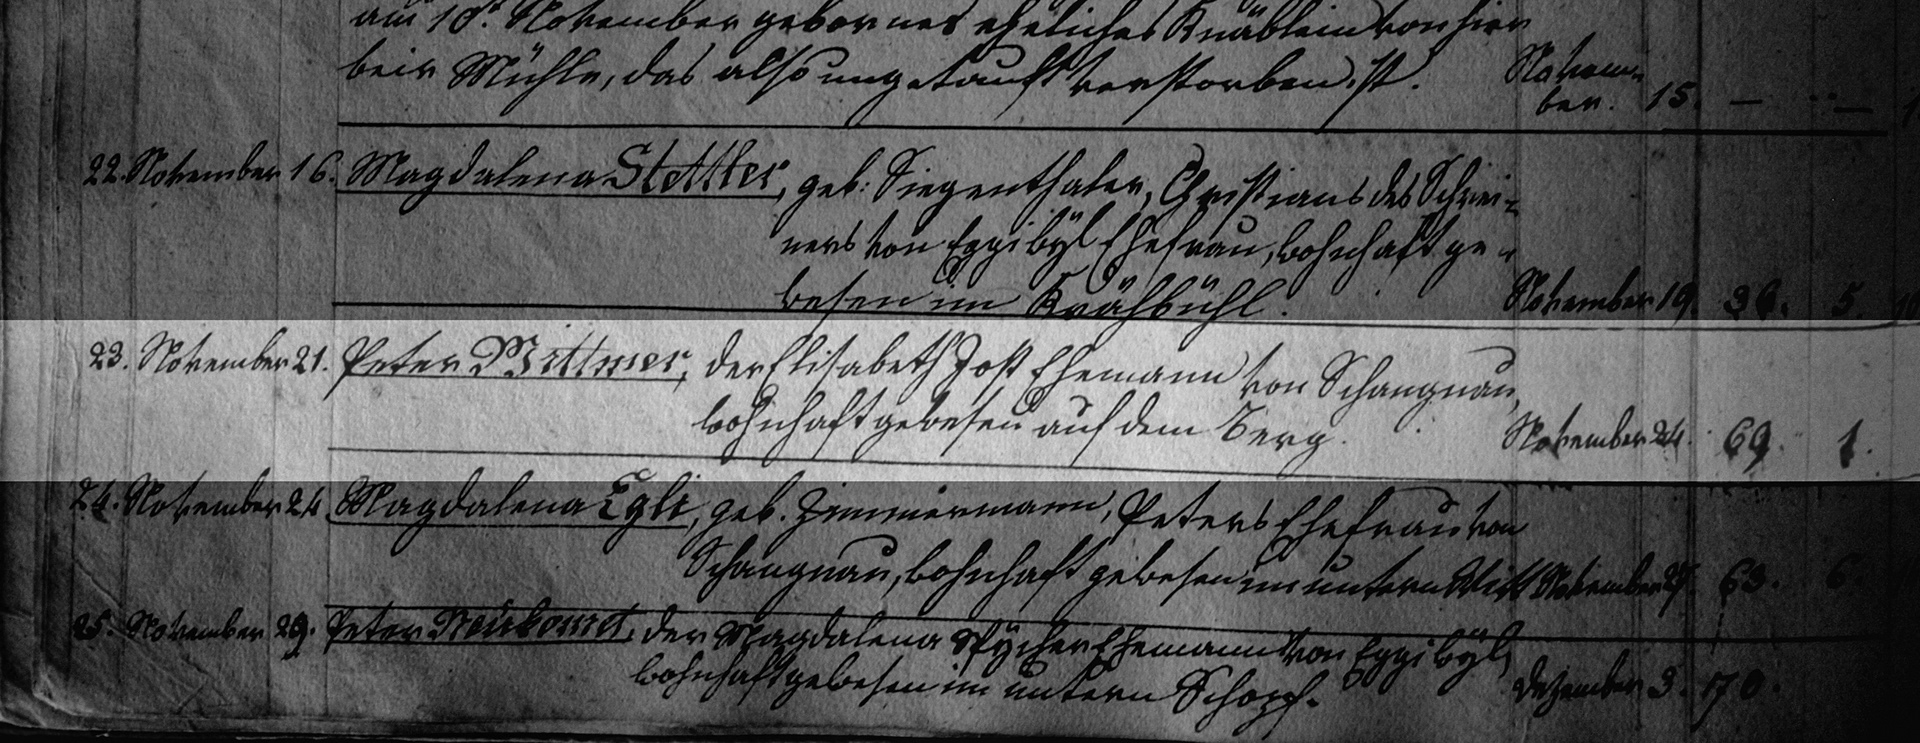 am 10t November gebornes eheliches Knäblein von hier
beir Mühle, das also ungetauft verstorben ist. Novem-
ber. 15. — —
22. November 16. Magdalena Stettler, geb: Siegenthaler, Christians des Schrei-
ners von Eggibÿl Ehefrau, wohnhaft ge-
wesen im Krähbühl. November 19. 36. 5.
23. November 21. Peter Wittwer, der Elisabeth Jost Ehemann von Schangnau,
wohnhaft gewesen auf dem Berg. November 24. 69. 1.
24. November 24 Magdalena Egli, geb. Zimmermann, Peters Ehefrau von
Schangnau, wohnhaft gewesen im untern November 27. 63. 6.
25. November 29. Peter Neükomet, der Magdalena Spÿcher Ehemann von Eggibÿl,
wohnhaft gewesen im untern Schopf. Dezember 3. 70.